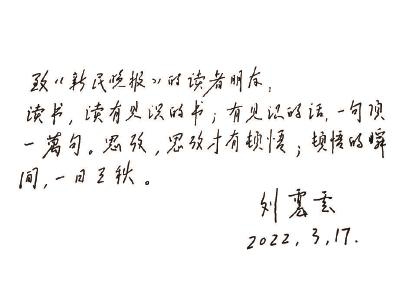 致《新民晚报》的读者朋友,
读书，读有见识的书；有见识的话,一句顶
一萬句。思攷，思攷才有顿悟；顿悟的瞬
间,一日三秋。
刘震云
2022,3,17.